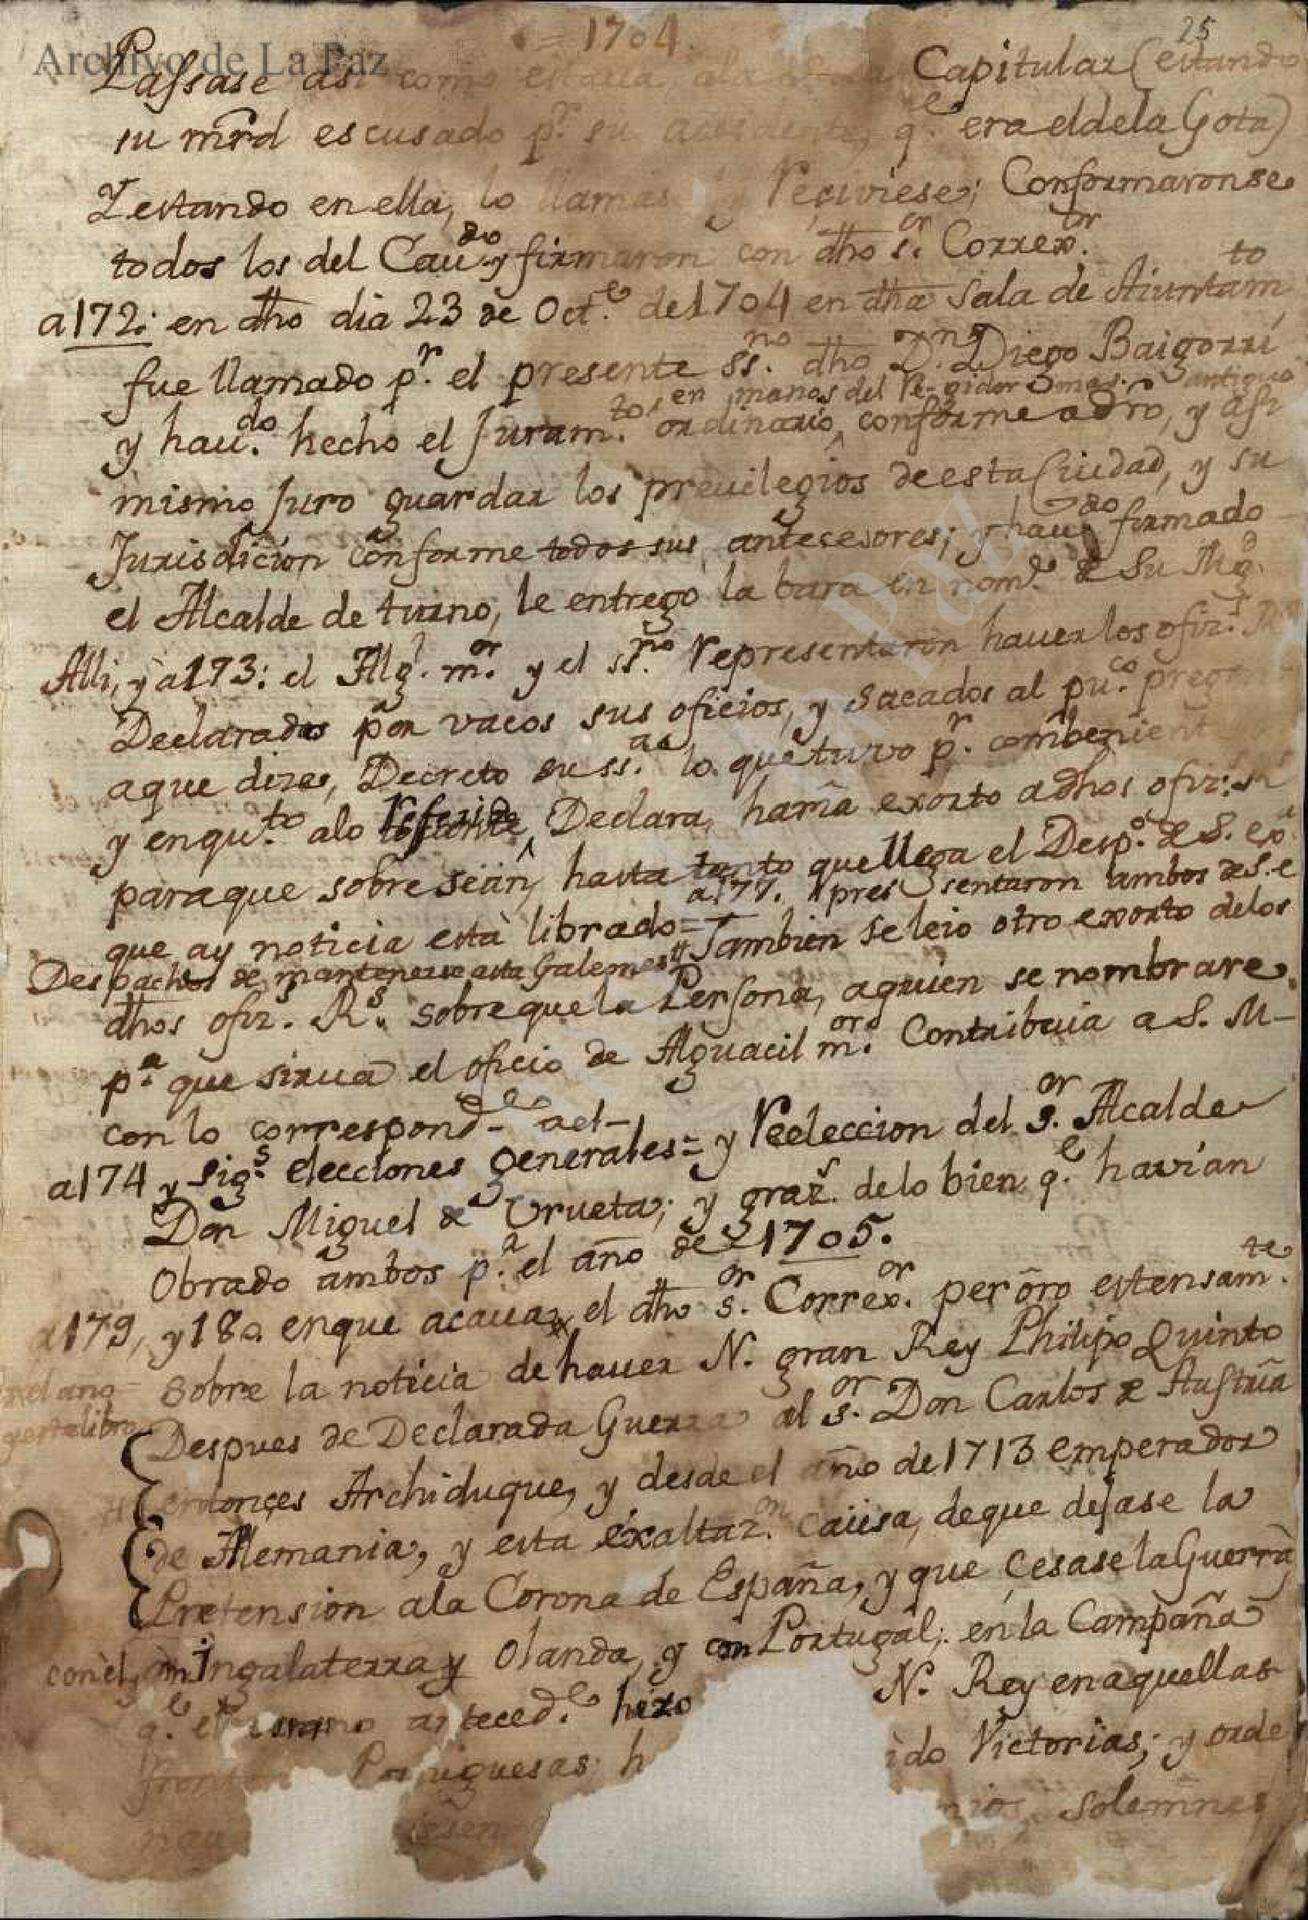 Archivo de La Paz
= 1704.
25
Passase asi como Capitular (estando
su mrd escusado pr. su qe. era el de la Gota)
Y estando en ella, lo llamas y reciviese; Conformaronse
todos los del Caudo. y firmaron con dho sor. Correxor.
a 172: en dho dia 23 de Octe. de 1704 en dha Sala de Aiuntamto
fue llamado pr. el presente ssno. dho Dn. Diego Baigorri
en manos del Regidor mas antiguo
y haudo. hecho el Juramto. ordinario, conforme a dro, y asi
mismo Juro guardar los preuilegios de esta Ciudad, y su
Jurisdicion conforme todos sus antecesores; y haudo firmado
el Alcalde de turno, le entregò la bara en nome. de Su Mgd.
Alli, y à 173: el Algl. mor. y el ssno. representaron hauer los ofizs.
Declarados por vacos sus oficios, y sacados al puco. preg
aque dize, Decreto su ssa. lo que tuvo pr. combenient
y enquto. alo referido Declara, haria exorto adhos ofiz:s
paraque sobreseian, hasta tanto que llega el Despo. de S. exa
a 177. presentaron ambos de S. e
que ay noticia està librado = Tambien se leio otro exorto delos
Despachos de mantenerse asta Galeones
dhos ofizs. Rs. sobre que la Persona, aquien se nombrare
pa. que sirua el oficio de Alguacil mor. Contribuia a S. M-
con lo correspond-e ael-
a 174 y sigs. elecciones generales = y reeleccion del sor. Alcalde
Don Miguel de Urueta; y grazs. delo bien qe. havian
Obrado ambos pa. el año de 1705.
a 179, y 180. enque acauar el dho sor. Correxor. perôrò estensamte.
sobre la noticia de hauer N. gran Rey Philipo Quinto
en el ano
y este libro
Despues de Declarada Guerra al sor. Don Carlos de Austria
entonçes Archiduque, y desde el año de 1713 emperador
de Alemania, y esta exaltazon. causa, deque dejase la
Pretension ala Corona de España, y que çesase la Guerra
con el, con Ingalaterra y Olanda, y con Portugal; en la Campaña
qe. el anteced.e hizo N. Rey enaquellas
Portuguesas h ido Victorias; y orde
nios, solemnes